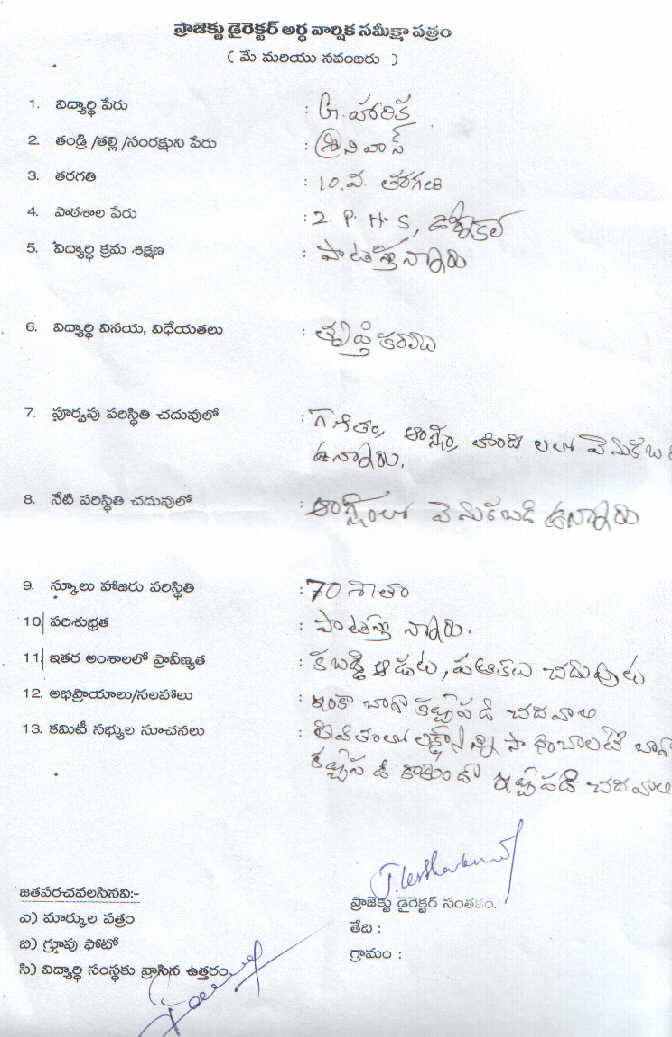 ప్రాజెక్టు డైరెక్టర్ అర్ధ వార్షిక సమీక్షా పత్రం
( మే మరియు నవంబరు )
1. విద్యార్థి పేరు : G. హారిక
2. తండ్రి /తల్లి /సంరక్షుని పేరు : శ్రీనివాస్
3. తరగతి : 10.వ. తరగతి
4. పాఠశాల పేరు : Z. P. H. S,
5. విద్యార్థి క్రమ శిక్షణ : పాటిస్తున్నారు
6. విద్యార్థి వినయ, విధేయతలు : తృప్తి కరము
7. పూర్వపు పరిస్థితి చదువులో : గణితం, ఆంగ్లం, హింది లలో వెనుకబడి
ఉన్నారు.
8. నేటి పరిస్థితి చదువులో : ఆంగ్లంలో వెనుకబడి ఉన్నారు
9. స్కూలు హాజరు పరిస్థితి : 70 శాతం
10| పరిశుభ్రత : పాటిస్తున్నారు.
11| ఇతర అంశాలలో ప్రావీణ్యత : కబడ్డి ఆడుట, పుస్తకాలు చదువుట
12. అభిప్రాయాలు/సలహాలు : ఇంకా బాగా కష్టపడి చదవాలి
13. కమిటీ సభ్యుల సూచనలు : జీవితంలో లక్ష్యాన్ని సాధించాలంటే బాగా
కష్టపడి కాకుండా ఇష్టపడి చదవాలి
జతపరచవలసినవి:-
ఎ) మార్కుల పత్రం
బి) గ్రూపు ఫోటో
సి) విద్యార్థి సంస్థకు వ్రాసిన ఉత్తరం.
ప్రాజెక్టు డైరెక్టర్ సంతకం.
తేది :
గ్రామం :